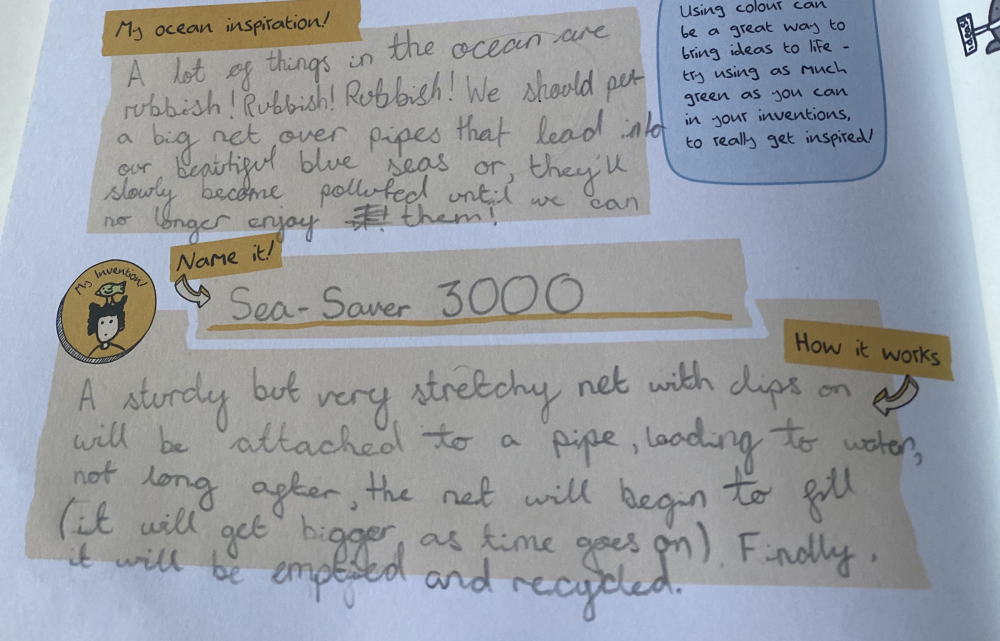 My ocean inspiration!
A lot of things in the ocean are
rubbish! Rubbish! Rubbish! We should put
a big net over pipes that lead into
our beautiful blue seas or, they'll
slowly become polluted until we can
no longer enjoy them!
Using colour can
be a great way to
bring ideas to life -
try using as much
green as you can
in your inventions,
to really get inspired!
My Invention!
Name it!
Sea-Saver 3000
How it works
A sturdy but very stretchy net with clips on
will be attached to a pipe, leading to water,
not long after, the net will begin to fill
(it will get bigger as time goes on). Finally,
it will be emptied and recycled.